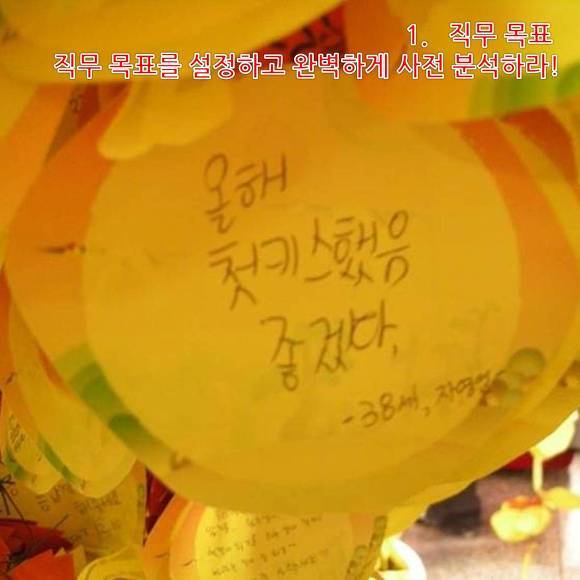 1. 직무 목표
직무 목표를 설정하고 완벽하게 사전 분석하라!
올해
첫키스했음
좋겠다.
-38세, 자영업-